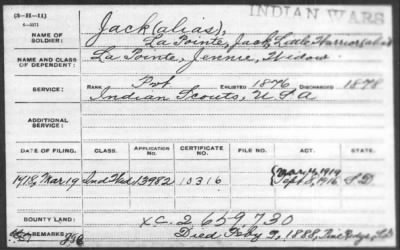 (3-H-11)
6-3271
INDIAN WARS
NAME OF SOLDIER:
Jack (alias),
La Pointe, Jack, Little Warrior (alias)
NAME AND CLASS OF DEPENDENT:
La Pointe, Jennie, Widow.
SERVICE:
RANK Pvt ENLISTED 1876 DISCHARGED 1878
Indian Scouts, U.S.A
ADDITIONAL SERVICE:
DATE OF FILING. CLASS. APPLICATION NO. CERTIFICATE NO. FILE NO. ACT. STATE.
1918, Mar 19 Ind Wid 13982 10316 S.D.
BOUNTY LAND:
XC. 2659730
REMARKS:
Died Feby 9, 1888, Pine Ridge, S.D.